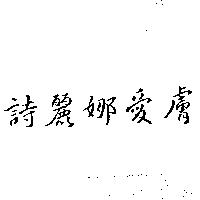 詩麗娜愛膚